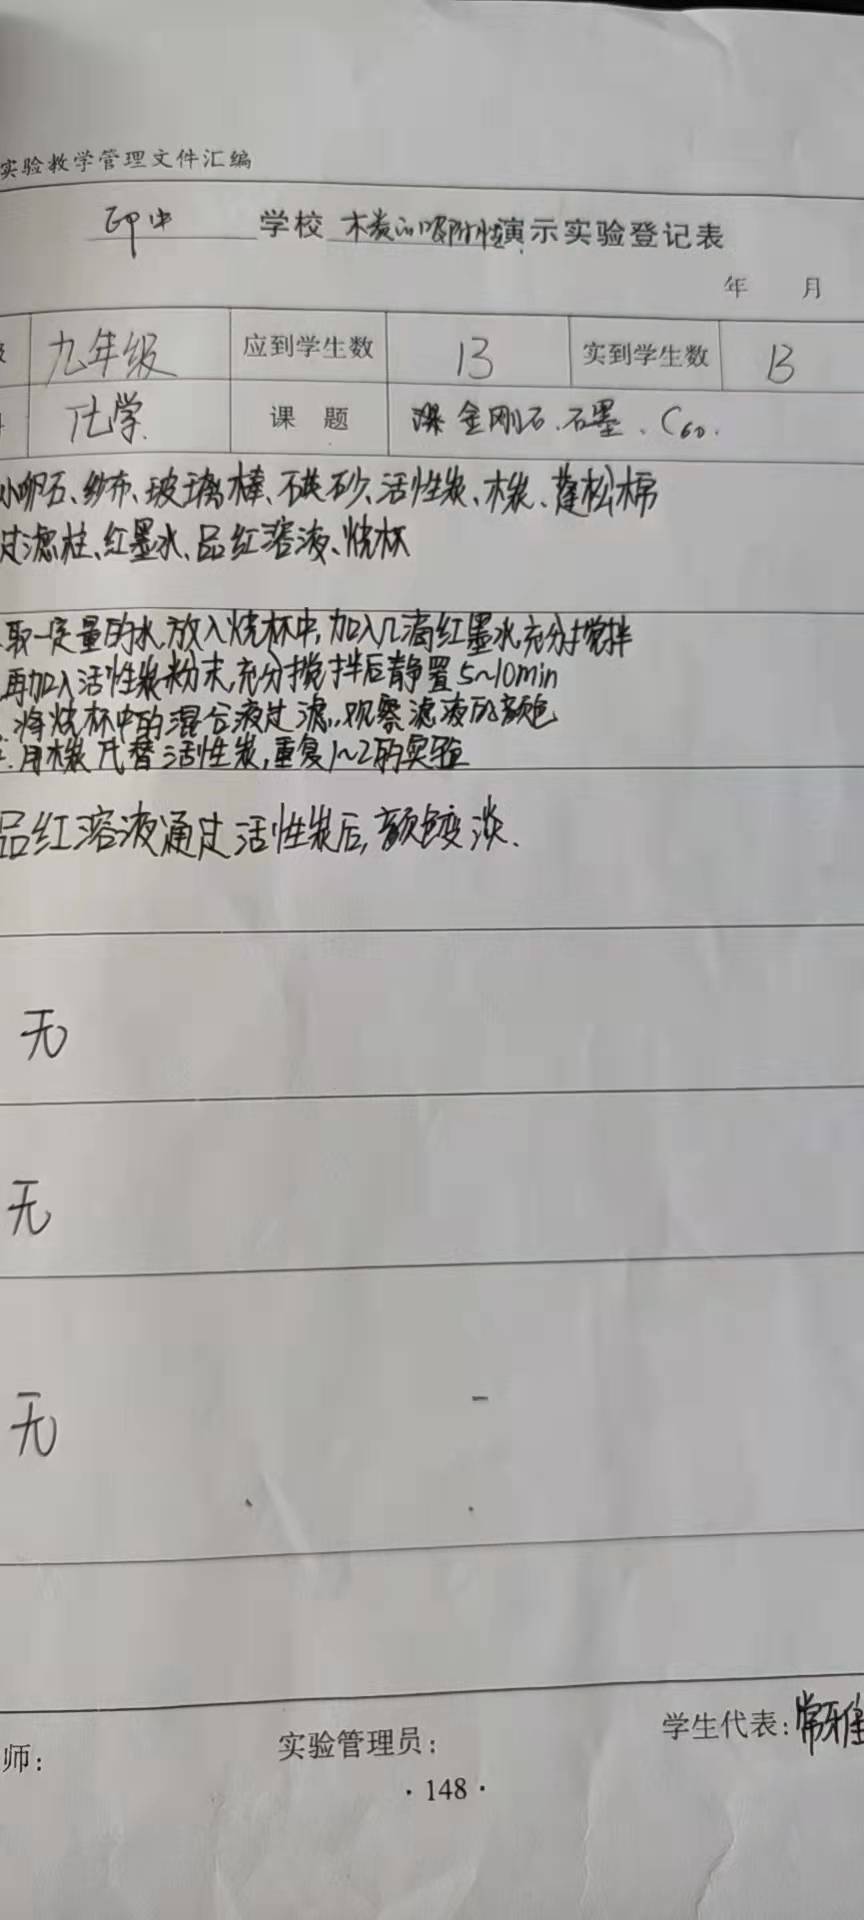 实验教学管理文件汇编
印中 学校 木炭的吸附性演示实验登记表
年 月
九年级 应到学生数 13 实到学生数 13
化学 课 题 金刚石、石墨、C60.
小卵石、纱布、玻璃棒、石英砂、活性炭、木炭、蓬松棉
过滤柱、红墨水、品红溶液、烧杯
取一定量的水,放入烧杯中,加入几滴红墨水,充分搅拌
再加入活性炭粉末,充分搅拌后静置5~10min
将烧杯中的混合液过滤,观察滤液的颜色
用木炭代替活性炭,重复1~2的实验
品红溶液通过活性炭后,颜色变淡.
无
无
无
师: 实验管理员: 学生代表:常雅
·148·